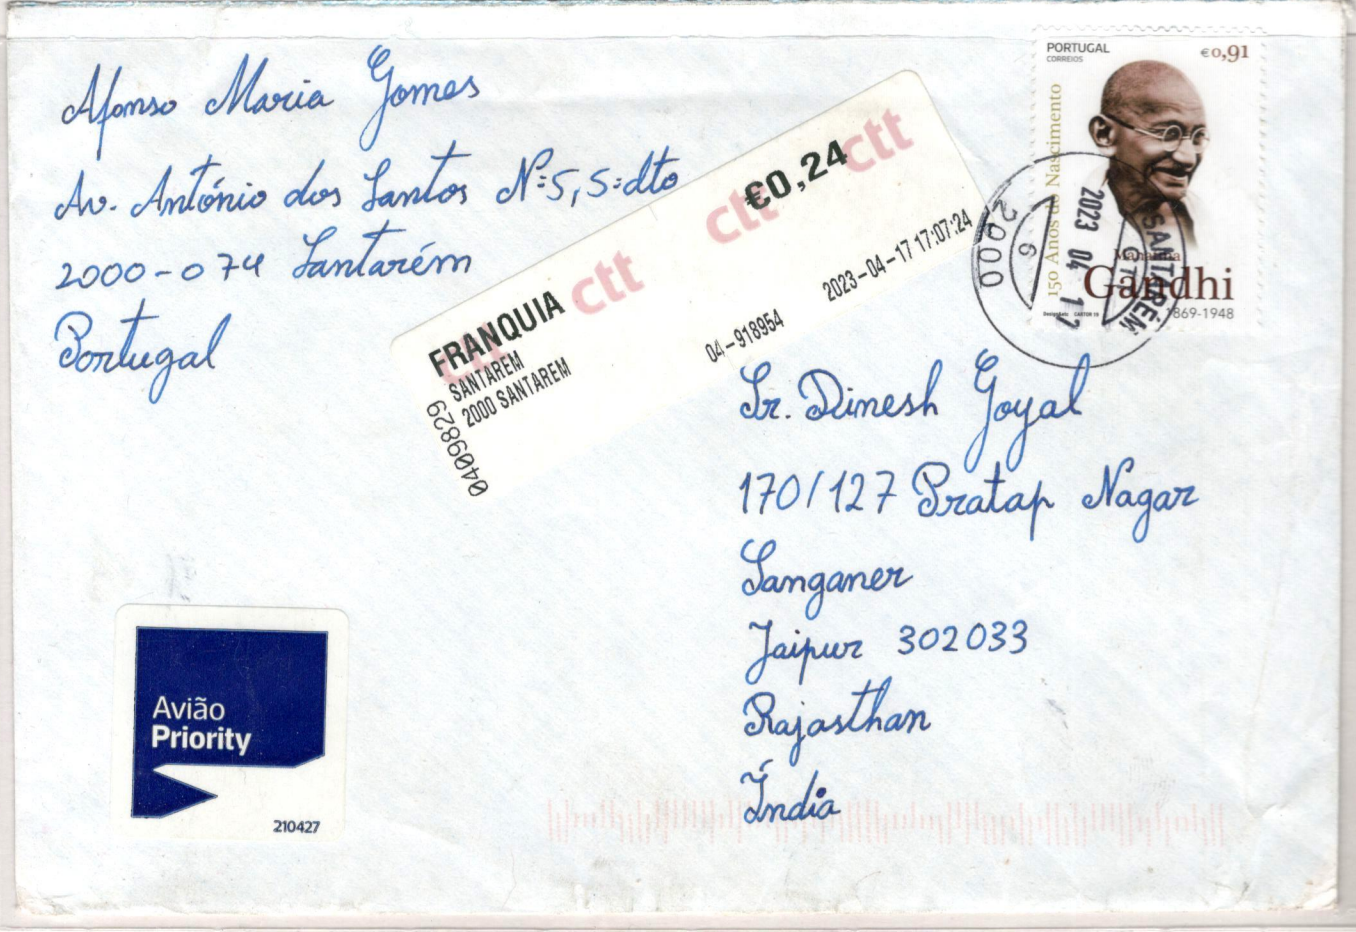 Afonso Maria Gomes
Av. António dos Santos Nº5, 5ºdto
2000-074 Santarém
Portugal
ctt ctt ctt ctt
€0,24
FRANQUIA
SANTAREM
2000 SANTAREM
04-918954
2023-04-17 17:07:24
0409829
PORTUGAL
CORREIOS
€0,91
150 Anos do Nascimento
Mahatma
Gandhi
1869-1948
2000
6
2023 04 17
CTT
SANTARÉM
Sr. Dinesh Goyal
170/127 Pratap Nagar
Sanganer
Jaipur 302033
Rajasthan
Índia
Avião
Priority
210427